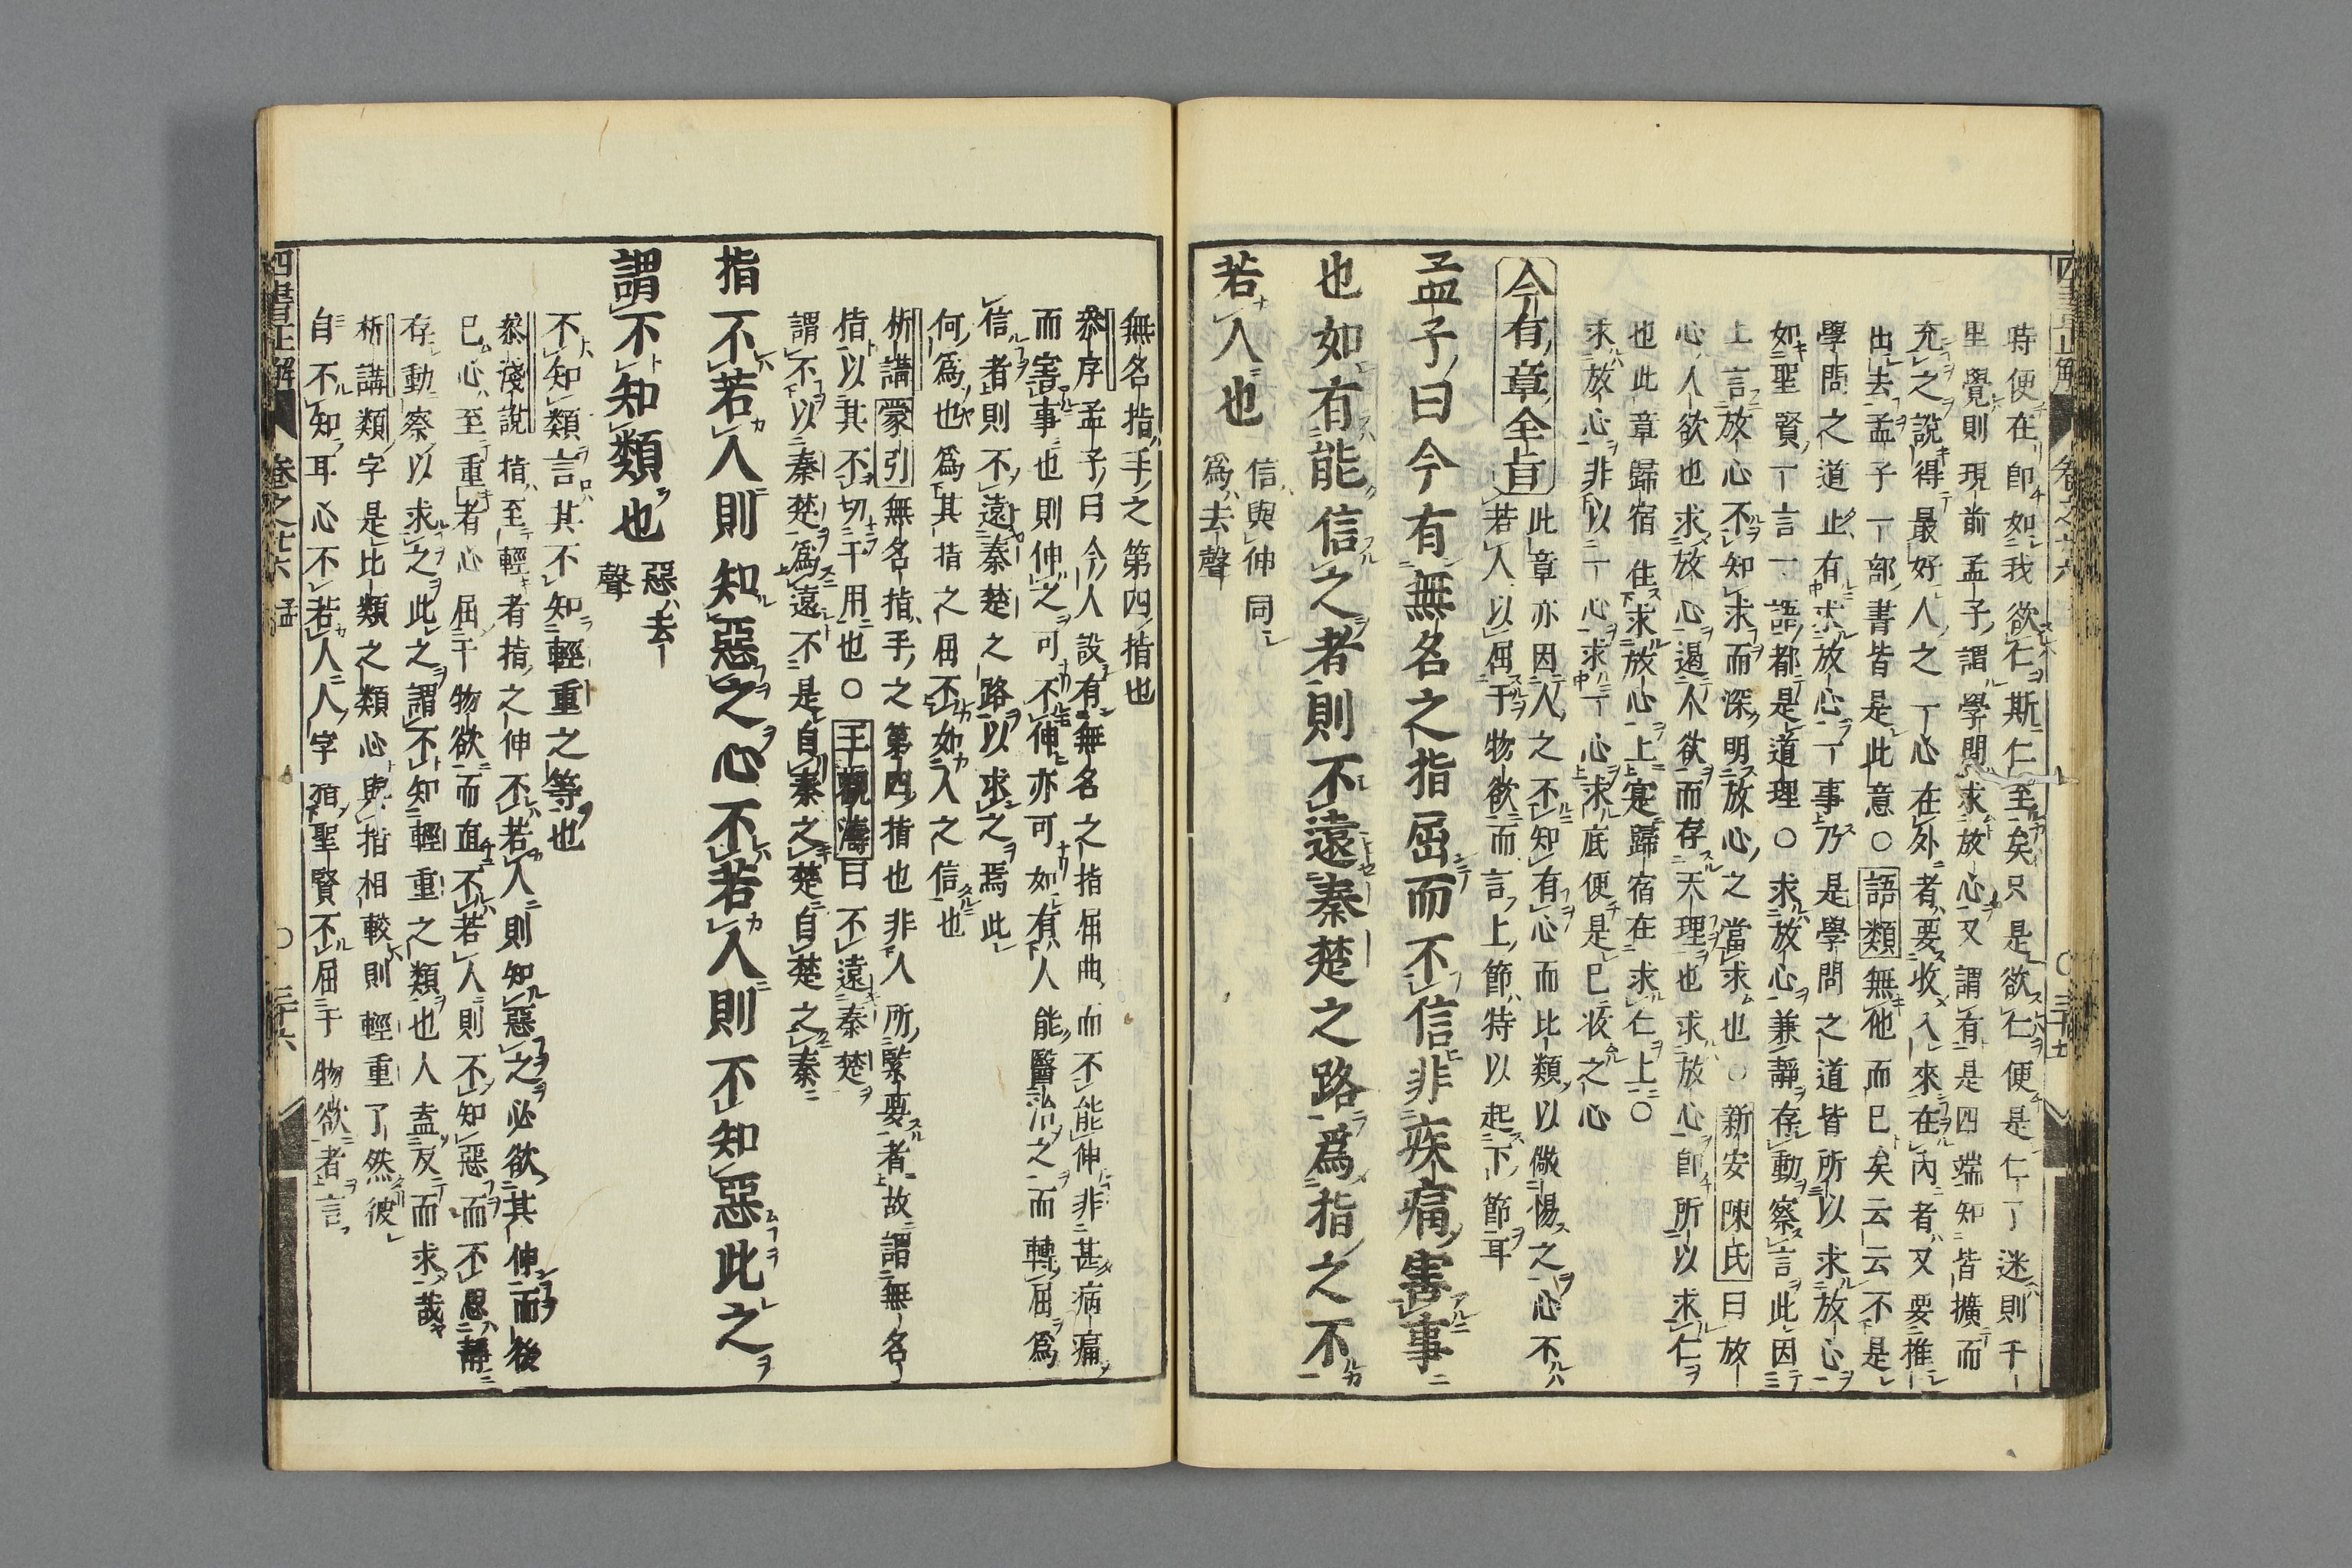 時便在即如我欲仁斯仁至矣只是欲仁便是仁丁迷則千
里覺則現前孟子謂學問求放心又謂有是四端知皆擴而
充之說得最好人之一心在外者要收入來在內者又要推
出去孟子一部書皆是此意○語類無他而已矣云云不是
學問之道止有求放心一事乃是學問之道皆所以求放心
如聖賢一言一語都是道理○求放心兼靜存動察言此因
上言放心不知求而深明放心之當求也○新安陳氏曰放
心人欲也求放心遏人欲而存天理也求放心即所以求仁
也此章歸宿住求放心上寔歸宿在求仁上○
求放心非以一心求一心求底便是已收之心
今有章全旨此章亦因人之不知有心而比類以儆惕之心不
若人以屈于物欲而言上節特以起下節耳
孟子曰今有無名之指屈而不信非疾痛害事
也如有能信之者則不遠秦楚之路爲指之不
若人也
信與伸同
爲去聲
無名指手之第四指也
參序孟子曰今人設有無名之指屈曲而不能伸非甚病痛
而害事也則伸之可不伸亦可如有人能醫治之而轉屈爲
信者則不遠秦楚之路以求之焉此
何爲也爲其指之屈不如人之信也
析講蒙引無名指手之第四指也非人所緊要者故謂無名
指以其不切于用也○王觀濤曰不遠秦楚
謂不以秦楚爲遠不是自秦之楚自楚之秦
指不若人則知惡之心不若人則不知惡此之
謂不知類也
惡去
聲
不知類言其不知輕重之等也
參淺說指至輕者指之伸不若人則知惡之必欲其伸而後
已心至重者心屈于物欲而直不若人則不知惡而不思靜
存動察以求之此之謂不知輕重之類也人盍反而求哉
析講類字是比類之類心與指相較則輕重了然彼
自不知耳心不若人人字指聖賢不屈于物欲者言
四書正解
卷之十六
四書正解
卷之十六 孟
三十六